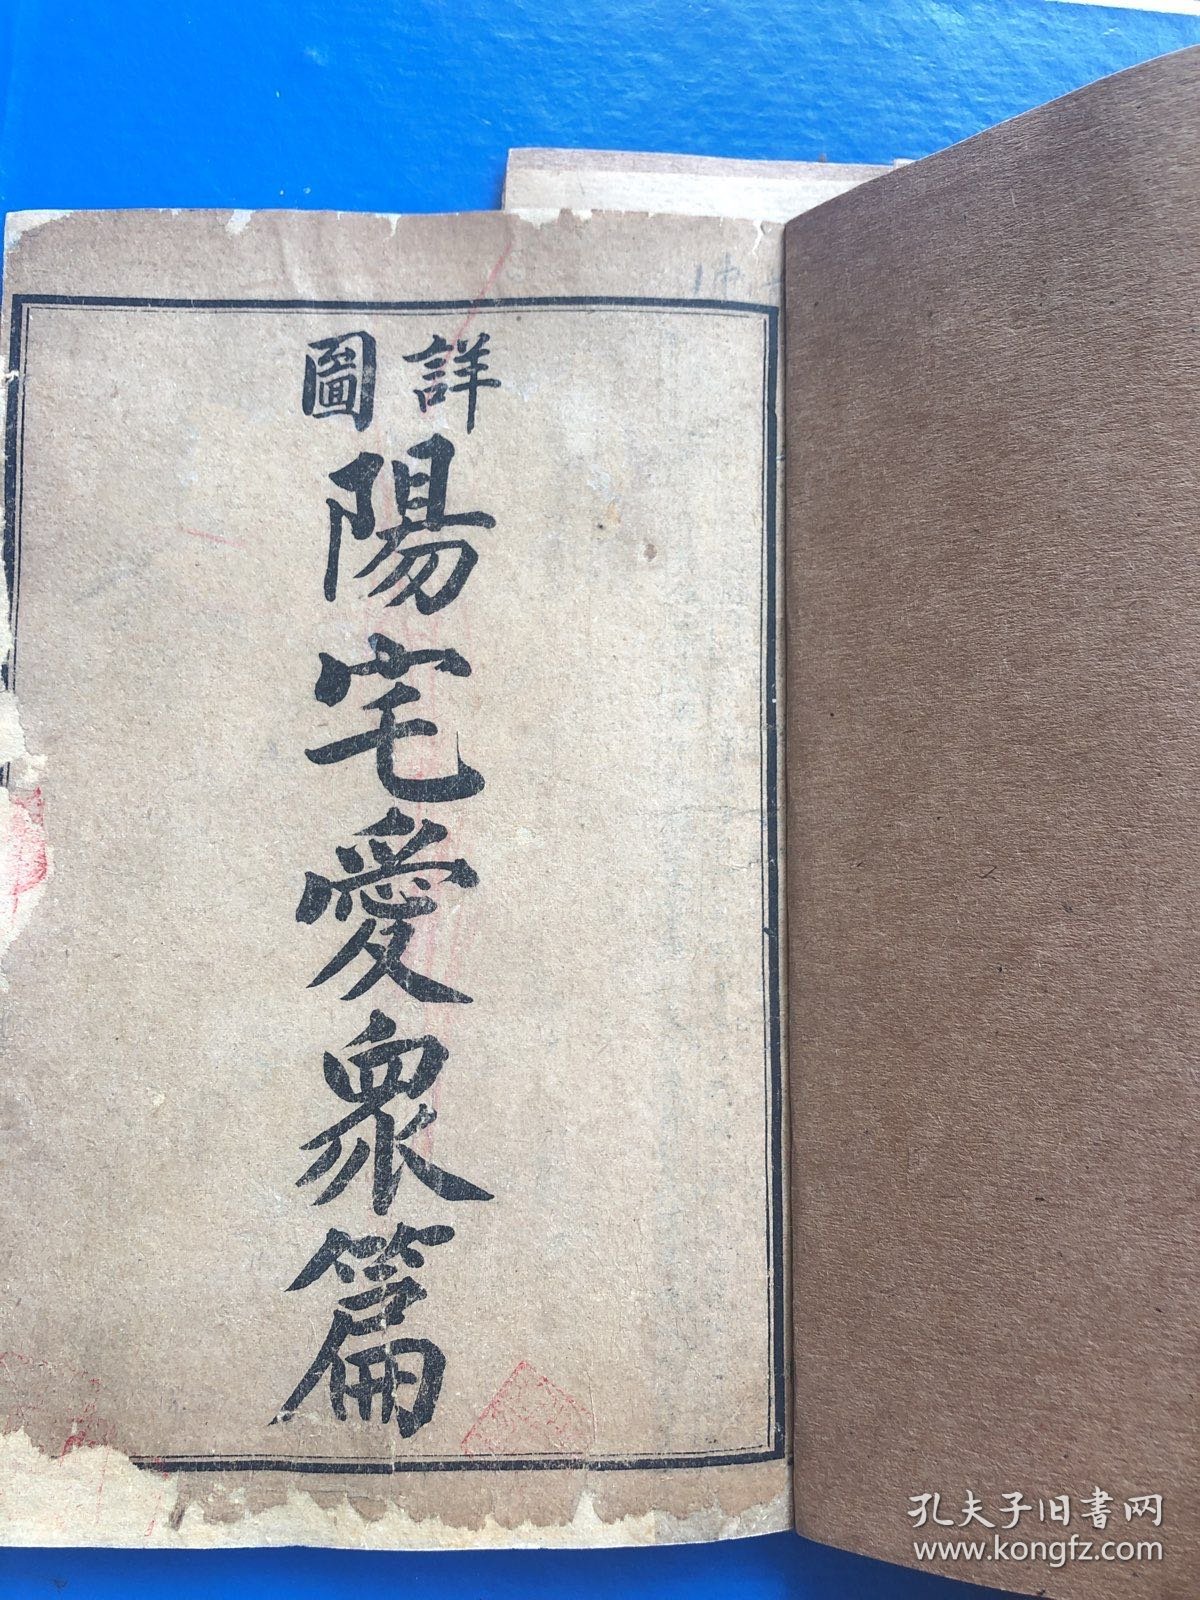 詳圖
陽宅愛眾篇
孔夫子旧書网
www.kongfz.com